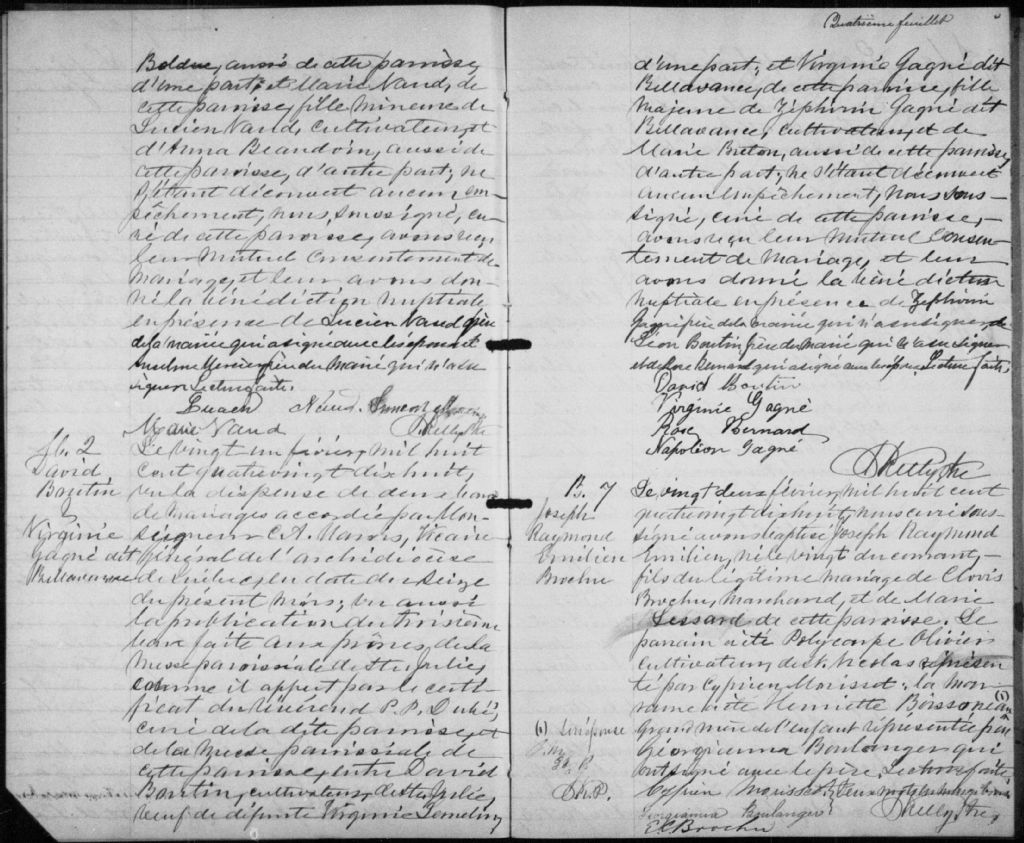 Bolduc, aussi de cette paroisse,
d'une part; et Marie Naud, de
cette paroisse, fille mineure de
Lucien Naud, cultivateur, et
d'Anna Beaudoin, aussi de
cette paroisse, d'autre part; ne
s'étant découvert aucun em-
pêchement, nous, soussigné, cu-
ré de cette paroisse, avons reçu
leur mutuel consentement de
mariage, et leur avons don-
né la bénédiction nuptiale
en présence de Lucien Naud père
de la mariée qui a signé avec les époux et
Anselme Mercier père du marié qui n'a su
signer. Lecture faite.
Naud
Marie Naud
M. 2
David
Boutin
&
Virginie
Gagné dit
Bellavance
Le vingt un février, mil huit
cent quatrevingt dix huit,
vu la dispense de deux bans
de mariages accordée par Mon-
seigneur C. A. Marois, Vicaire
général de l'archidiocèse
de Québec, en date du seize
du présent mois; vu aussi
la publication du troisième
ban faite aux prônes de la
messe paroissiale de Ste Julie,
comme il appert par le certi-
ficat du révérend P. P. Dubé,
curé de la dite paroisse, et
de la messe paroissiale de
cette paroisse, entre David
Boutin, cultivateur, de Ste Julie,
veuf de défunte Virginie Gemelin,
Quatrième feuillet
d'une part; et Virginie Gagné dit
Bellavance, de cette paroisse, fille
majeure de Zéphirin Gagné dit
Bellavance, cultivateur, et de
Marie Breton, aussi de cette paroisse,
d'autre part; ne s'étant découvert
aucun empêchement, nous sous-
signé, curé de cette paroisse,
avons reçu leur mutuel consen-
tement de mariage, et leur
avons donné la bénédiction
nuptiale en présence de Zéphirin
Gagné père de la mariée qui n'a su signer, de
Léon Boutin père du marié qui n'a su signer
et de Rose Bernard qui a signé avec les époux. Lecture faite.
David Boutin
Virginie Gagné
Rose Bernard
Napoléon Gagné
B. 7
Joseph
Raymond
Emilien
Brochu
Le vingt deux février, mil huit cent
quatrevingt dix huit, nous curé sous-
signé avons baptisé Joseph Raymond
Emilien, né le vingt du courant,
fils du légitime mariage de Clovis
Brochu, marchand, et de Marie
Lessard de cette paroisse. Le
parrain a été Polycarpe Olivier
cultivateur, de St. Nicolas représen-
té par Cyprien Morisset; la mar-
raine a été Henriette Boissoneau (1)
grand'mère de l'enfant représentée par
Georgianna Boulanger qui
ont signé avec le père. Lecture faite.
Cyprien Morisset
Georgianna Boulanger